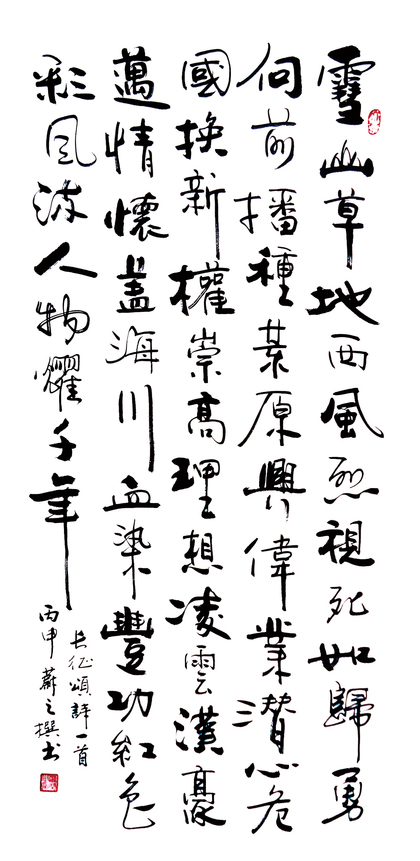 雪山草地西風烈視死如歸勇
向前播種原興偉業潜心危
國換新權崇高理想凌雲漢豪
邁情懷蓋海川血染豐功紅色
彩風流人物耀千年
长征頌詩一首
丙申之撰书